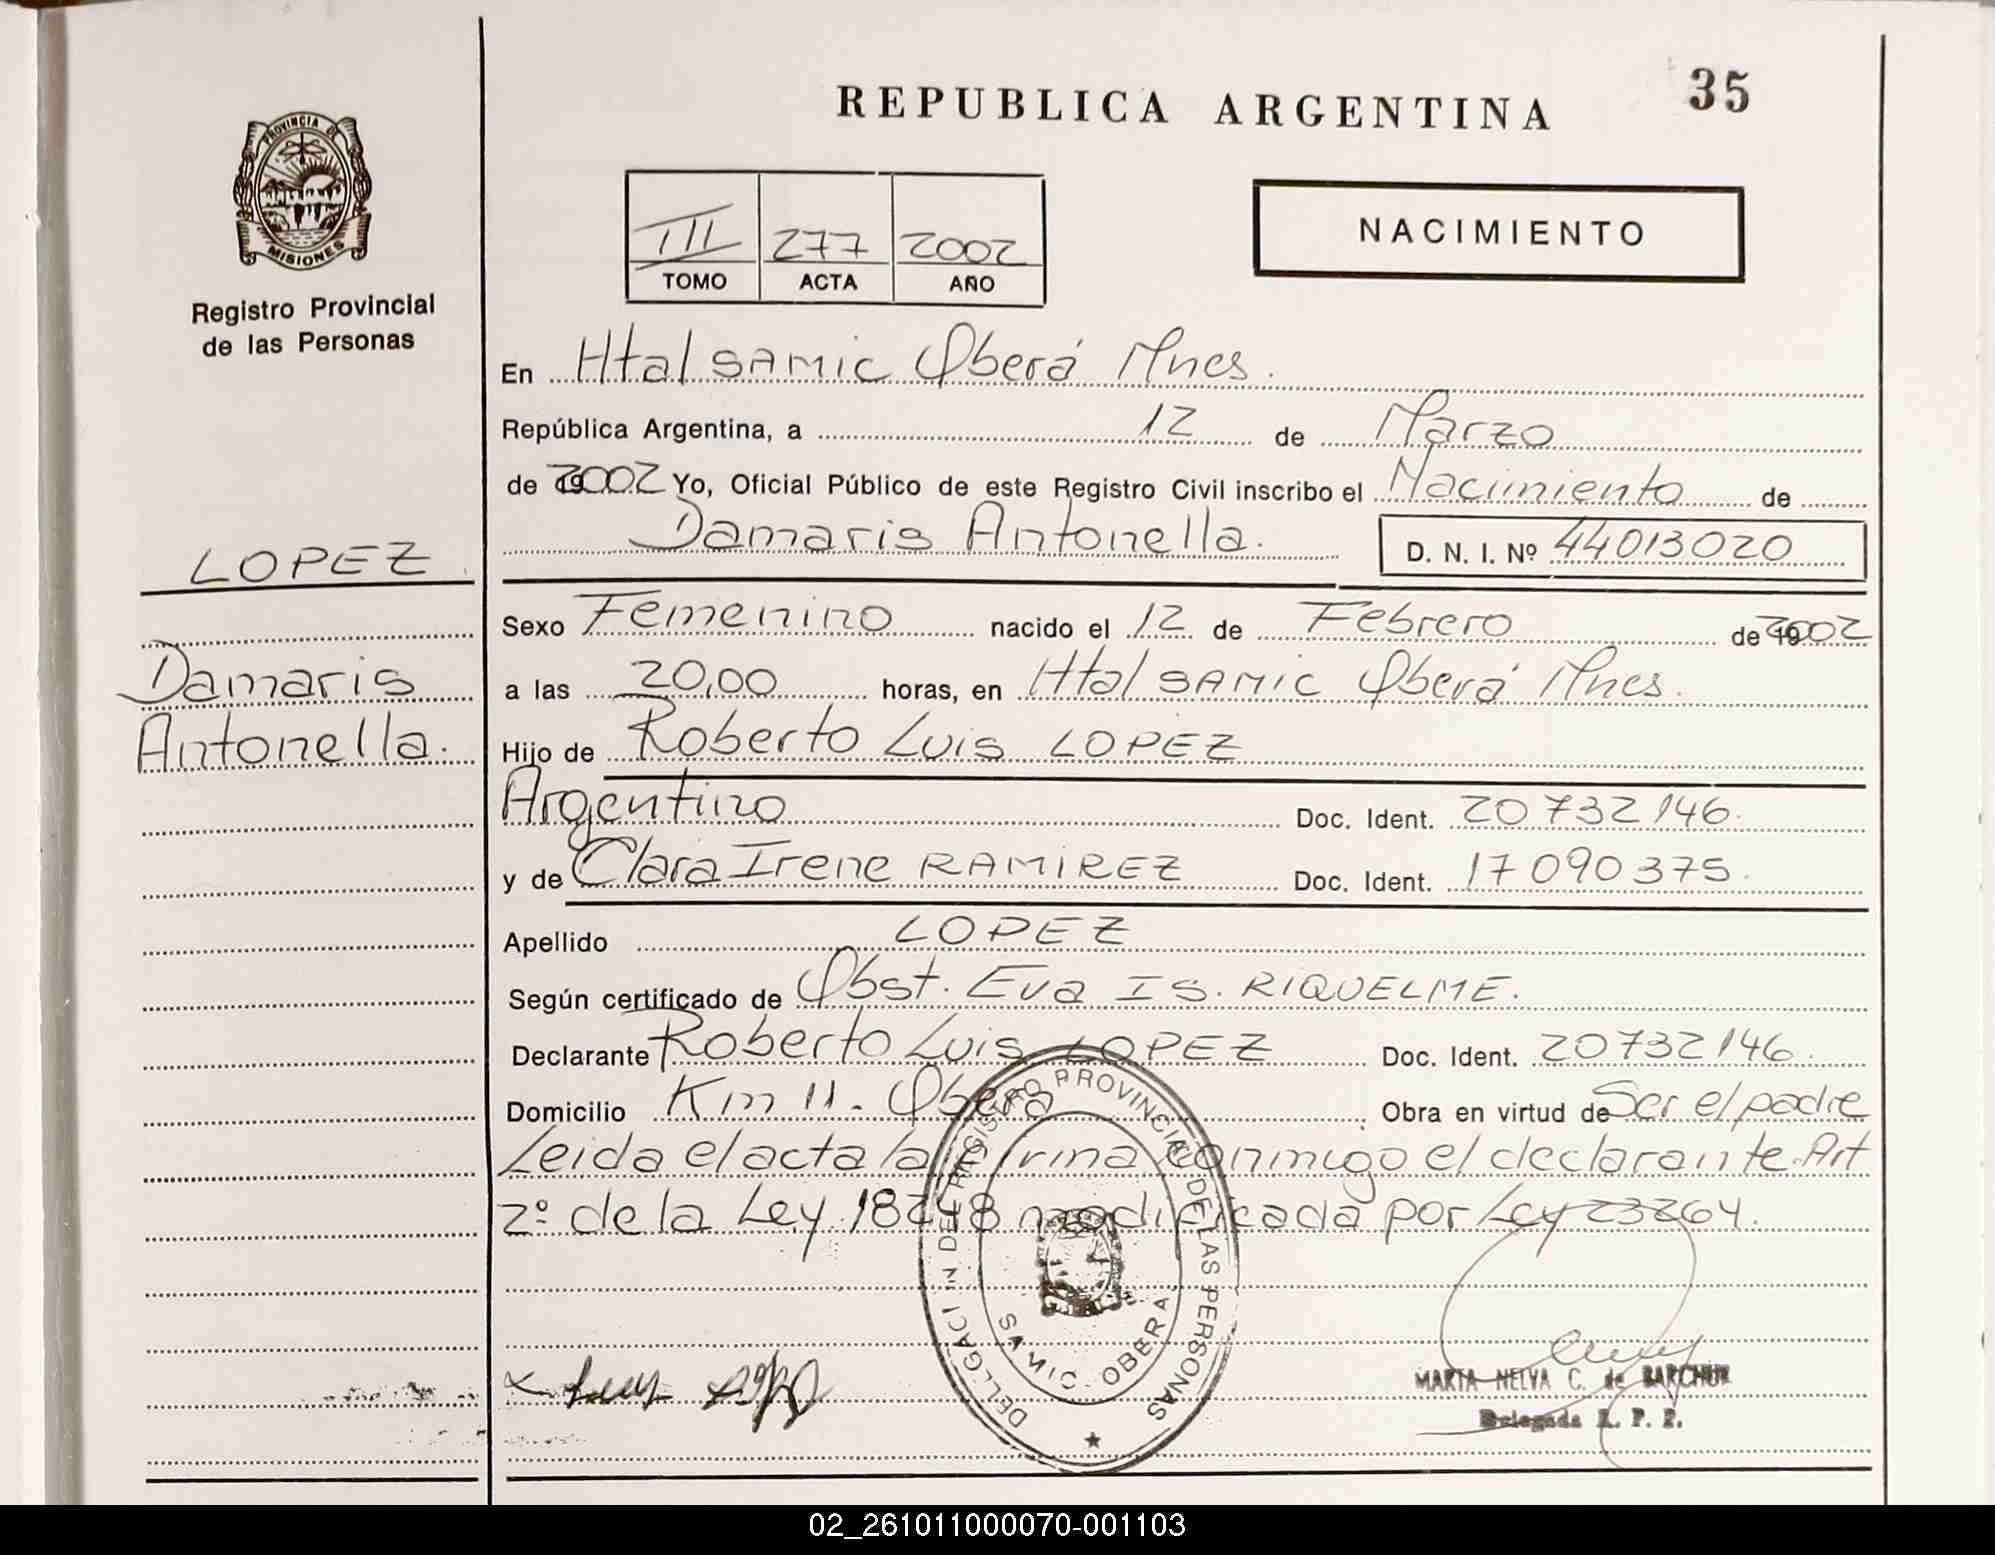 REPUBLICA ARGENTINA
35
PROVINCIA DE
MISIONES
Registro Provincial
de las Personas
III 277 2002
TOMO ACTA AÑO
NACIMIENTO
En Htal SAMIC Oberá Mnes.
República Argentina, a 12 de Marzo
de 2002 Yo, Oficial Público de este Registro Civil inscribo el Nacimiento de
Damaris Antonella.
D. N. I. Nº 44013020
LOPEZ
Damaris
Antonella.
Sexo Femenino nacido el 12 de Febrero de 2002
a las 20,00 horas, en Htal SAMIC Oberá Mnes.
Hijo de Roberto Luis LOPEZ
Argentino Doc. Ident. 20732146.
y de Clara Irene RAMIREZ Doc. Ident. 17090375.
Apellido LOPEZ
Según certificado de Obst. Eva Is. RIQUELME.
Declarante Roberto Luis LOPEZ Doc. Ident. 20732146.
Domicilio Km 11. Oberá Obra en virtud de Ser el padre
Leida el acta la firma conmigo el declarante. Art
2º de la Ley 18248 modificada por Ley 23264.
DELEGACION DE REGISTRO PROVINCIAL DE LAS PERSONAS
SAMIC - OBERA
MARTA NELVA C. de BARCHUK
Delegada R. P. P.
02_261011000070-001103